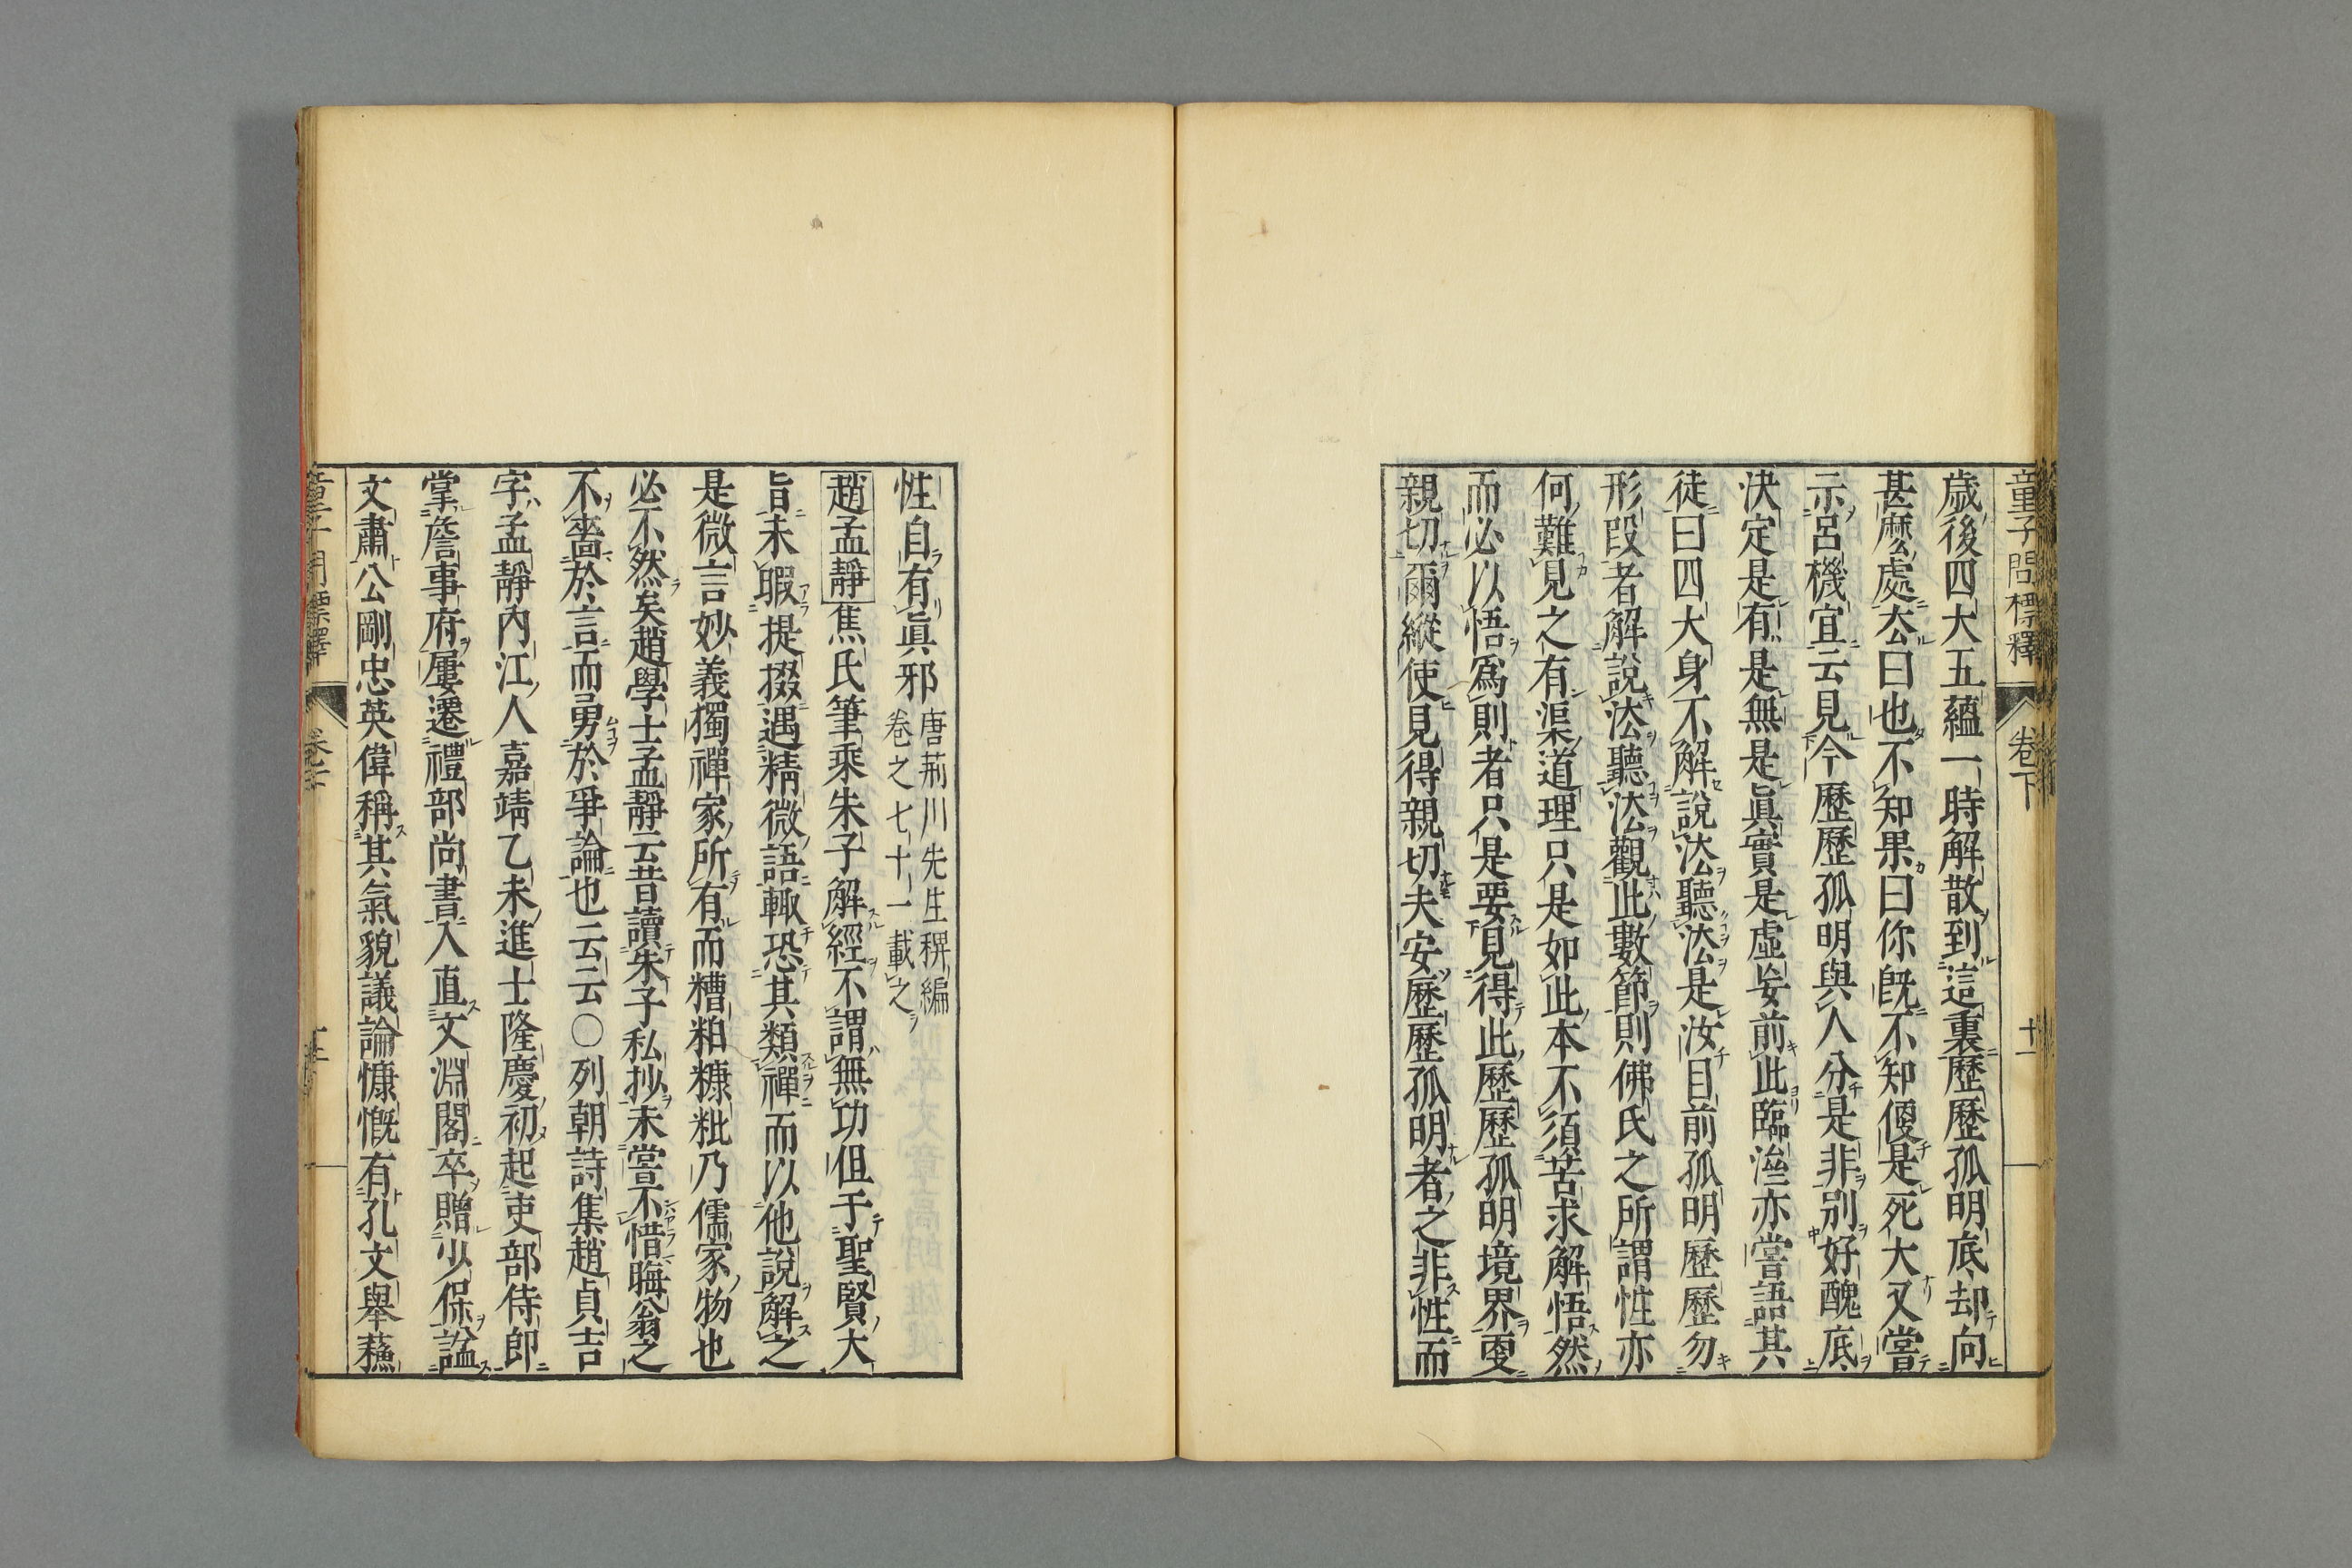 童子問標釋 卷下 十一
歳後四大五蘊一時解散到這裏歷歷孤明底却向
甚麼處去曰也不知果曰你旣不知便是死大又嘗
示呂機宜云見今歷歷孤明與人分是非別好醜底
決定是有是無是眞實是虛妄前此臨濟亦嘗語其
徒曰四大身不解說法聽法是汝目前孤明歷歷勿
形段者解說法聽法觀此數節則佛氏之所謂性亦
何難見之有渠道理只是如此本不須苦求解悟然
而必以悟爲則者只是要見得此歷歷孤明境界更
親切爾縱使見得親切夫安歷歷孤明者之非性而
性自有眞邪 唐荊川先生稗編
卷之七十一載之
趙孟靜 焦氏筆乘朱子解經不謂無功但于聖賢大
旨未暇提掇遇精微語輒恐其類禪而以他說解之
是微言妙義獨禪家所有而糟粕糠粃乃儒家物也
必不然矣趙學士孟靜云昔讀朱子私抄未嘗不惜晦翁之
不嗇於言而勇於爭論也云云〇列朝詩集趙貞吉
字孟靜內江人嘉靖乙未進士隆慶初起吏部侍郎
掌詹事府屢遷禮部尚書入直文淵閣卒贈少保諡
文肅公剛忠英偉稱其氣貌議論慷慨有孔文舉蘓